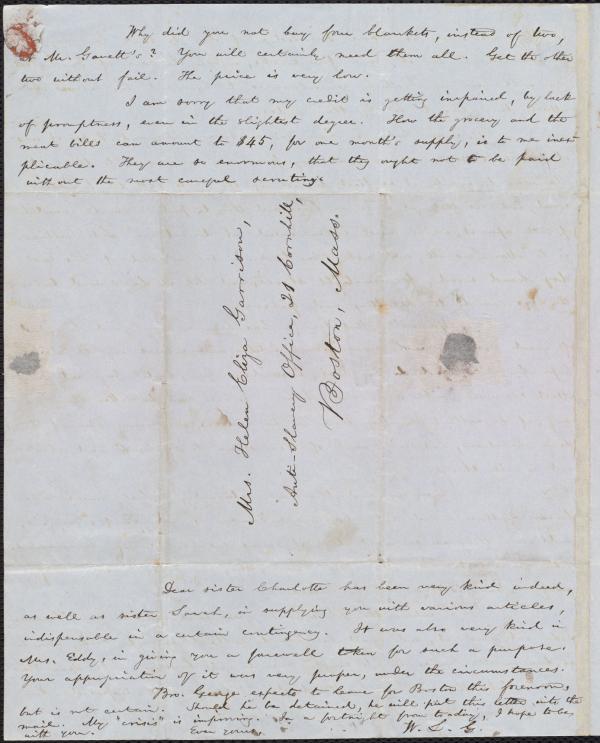 Why did you not buy four blankets, instead of two,
at Mr. Gavett's? You will certainly need them all. Get the other
two without fail. The price is very low.
I am sorry that my credit is getting impaired, by lack
of promptness, even in the slightest degree. How the grocery and the
meat bills can amount to $45, for one month's supply, is to me inex-
plicable. They are so enormous, that they ought not to be paid
without the most careful scrutiny.
Mrs. Helen Eliza Garrison,
Anti-Slavery Office, 21 Cornhill,
Boston, Mass.
Dear sister Charlotte has been very kind indeed,
as well as sister Sarah, in supplying you with various articles,
indispensable in a certain contingency. It was also very kind in
Mrs. Eddy, in giving you a farewell token for such a purpose.
Your appropriation of it was very proper, under the circumstances.
Bro. George expects to leave for Boston this forenoon,
but is not certain. Should he be detained, he will put this letter into the
mail. My "crisis" is improving. In a fortnight from to-day, I hope to be
with you. Ever yours, W. L. G.